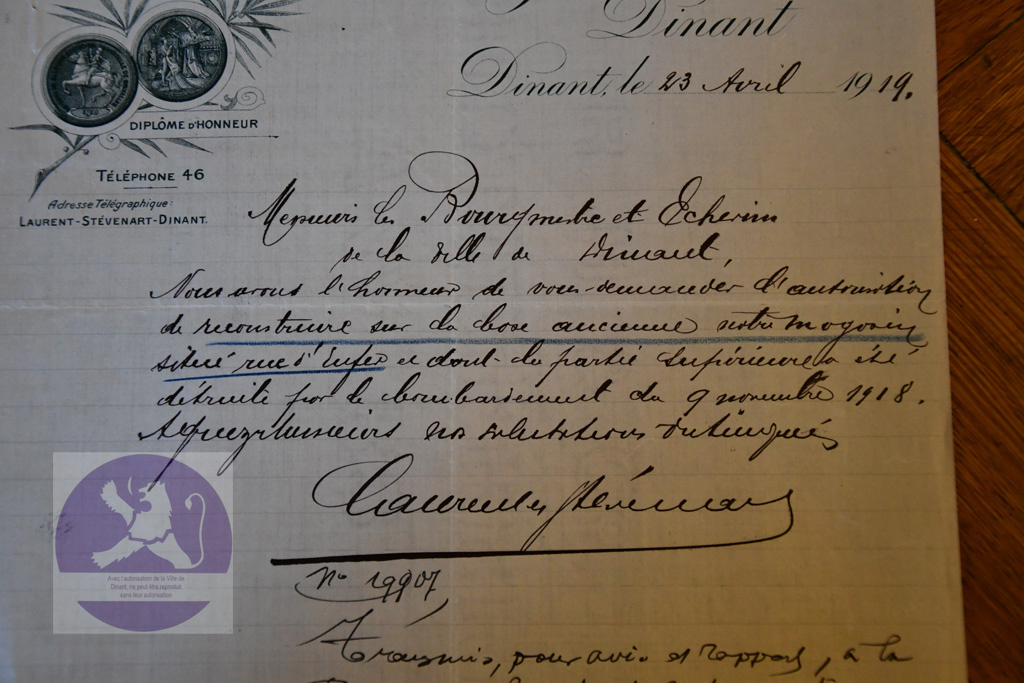 Dinant
Dinant, le 23 Avril 1919.
DIPLÔME D'HONNEUR
TÉLÉPHONE 46
Adresse Télégraphique:
LAURENT-STÉVENART-DINANT.
Messieurs les Bourgmestre et Echevins
de la Ville de Dinant,
Nous avons l'honneur de vous demander l'autorisation
de reconstruire sur la base ancienne notre magasin
situé rue d'Enfer et dont la partie supérieure a été
détruite par le bombardement du 9 novembre 1918.
Agréez Messieurs nos salutations distinguées
Laurent Stévenart
N° 19907
Transmis, pour avis et rapport, à la
Avec l'autorisation de la Ville de
Dinant, ne peut être reproduit
sans leur autorisation